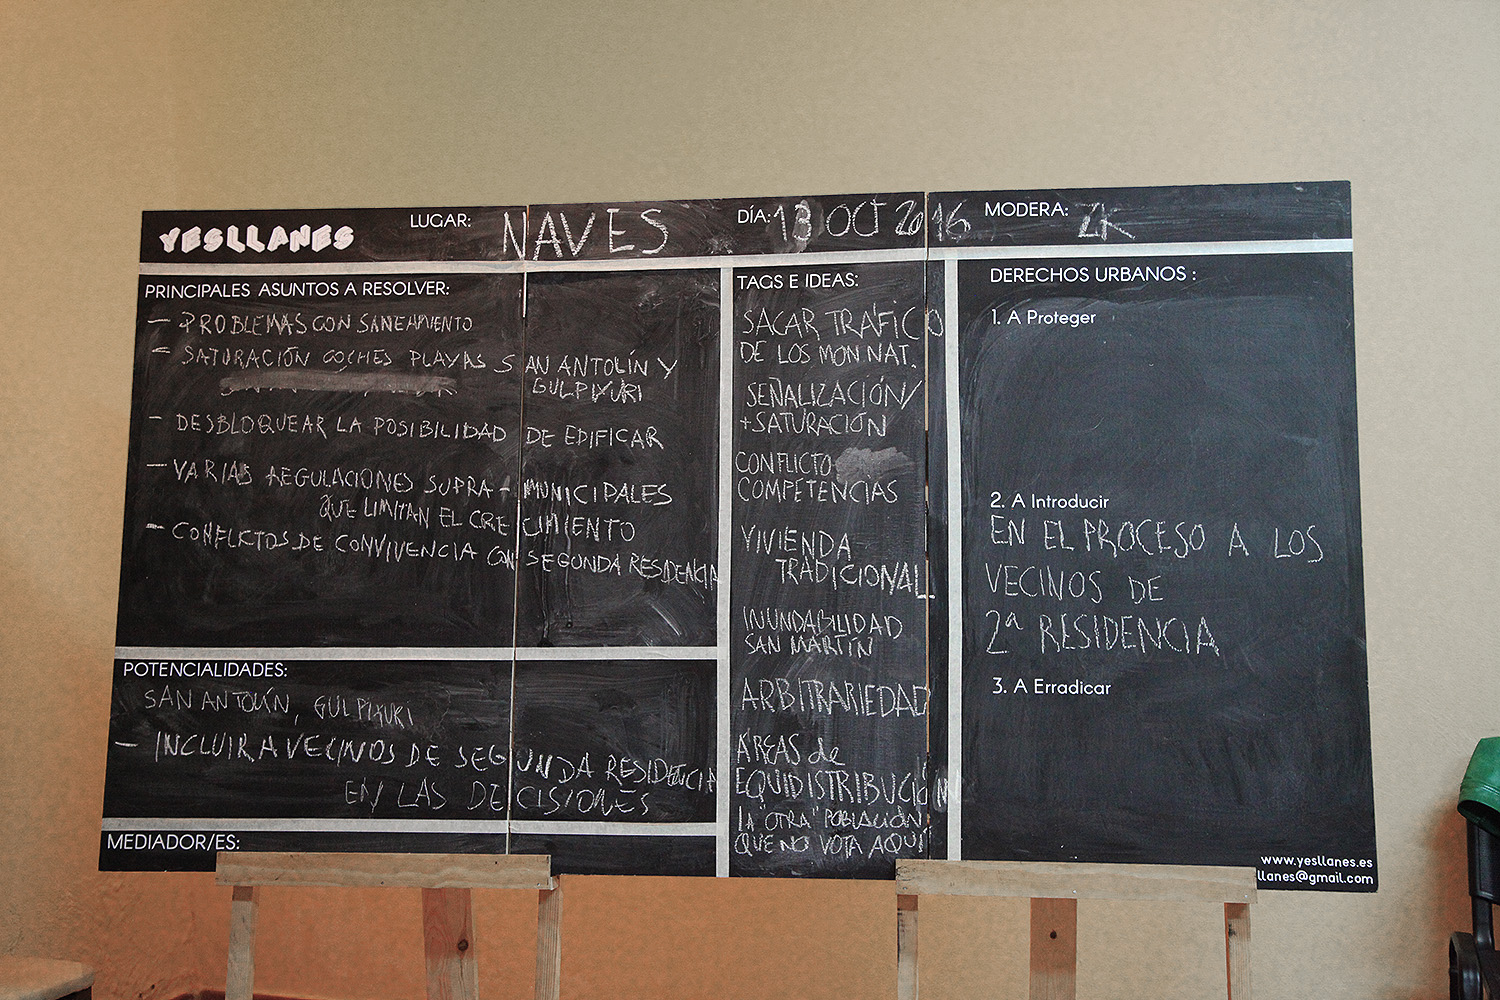 YESLLANES
LUGAR: NAVES
DÍA: 13 OCT 2016
MODERA: ZK
PRINCIPALES ASUNTOS A RESOLVER:
— PROBLEMAS CON SANEAMIENTO
— SATURACIÓN COCHES PLAYAS SAN ANTOLÍN Y
GULPIYURI
— DESBLOQUEAR LA POSIBILIDAD DE EDIFICAR
— VARIAS REGULACIONES SUPRA-MUNICIPALES
QUE LIMITAN EL CRECIMIENTO
— CONFLICTOS DE CONVIVENCIA CON SEGUNDA RESIDENCIA
POTENCIALIDADES:
SAN ANTOLÍN, GULPIYURI
— INCLUIR A VECINOS DE SEGUNDA RESIDENCIA
EN LAS DECISIONES
MEDIADOR/ES:
TAGS E IDEAS:
SACAR TRÁFICO
DE LOS MON NAT.
SEÑALIZACIÓN/
+SATURACIÓN
CONFLICTO
COMPETENCIAS
VIVIENDA
TRADICIONAL
INUNDABILIDAD
SAN MARTÍN
ARBITRARIEDAD
ÁREAS de
EQUIDISTRIBUCIÓN
LA "OTRA" POBLACIÓN
QUE NO VOTA AQUÍ
DERECHOS URBANOS :
1. A Proteger
2. A Introducir
EN EL PROCESO A LOS
VECINOS DE
2ª RESIDENCIA
3. A Erradicar
www.yesllanes.es
llanes@gmail.com